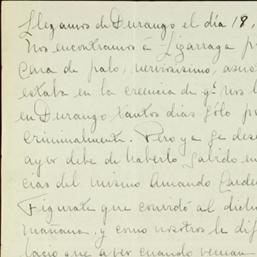 Llegamos de Durango el día 18,
Nos encontramos á Lizarraga
cara de palo, nerviosísimo,
estaba en la creencia de q.e nos
en Durango, tantos dias sólo
criminalmente. Pero ya se
ayer debe de haberlo sabido en
cias del mismo Amando
Figurate que convidó al
mañana. y como nosotros le
lacio que ayer cuando venian